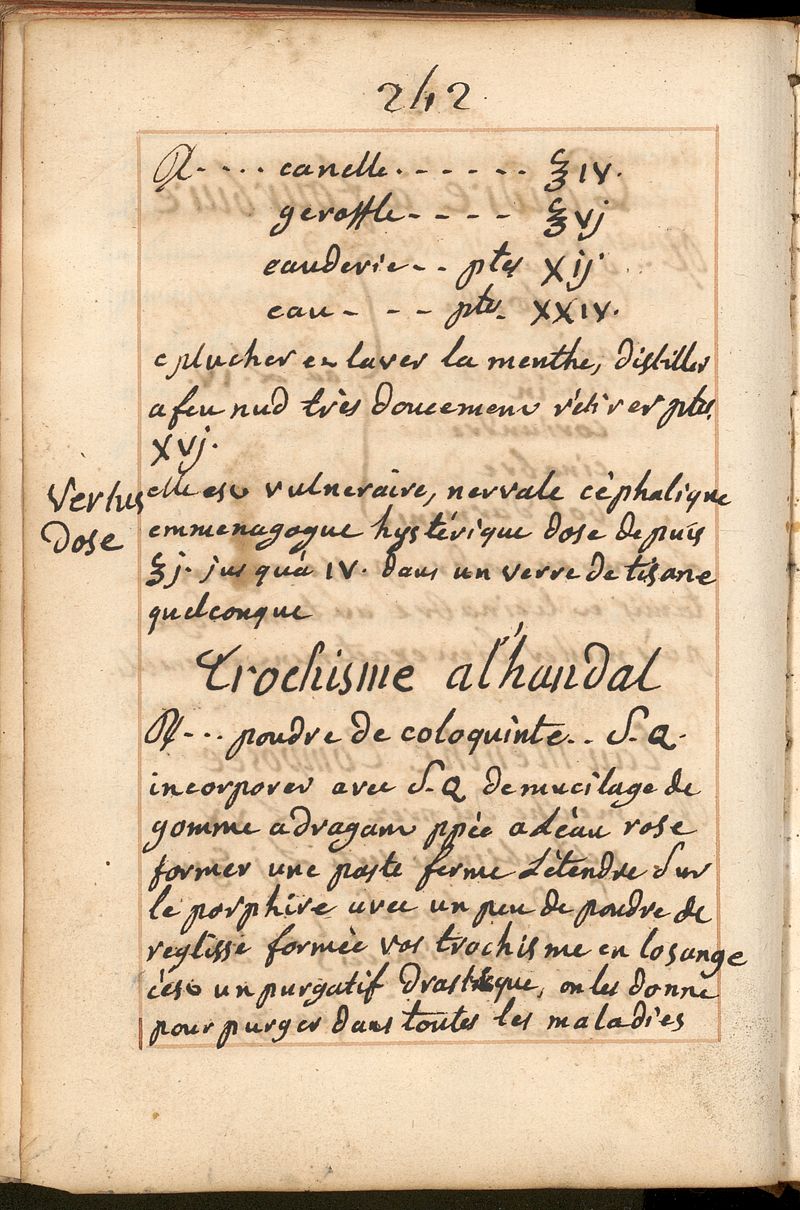 242
℞ - - - - canelle - - - - - - ℥ IV.
geroffle - - - - ℥ vj
eauderie - - ptes Xij
eau - - - - ptes XXIV.
eplucher et laver la menthe, distiller
a feu nud très doucement rétirer ptes
XVj.
Vertus elle est vulneraire, nervale céphalique
Dose emmenagogue hystérique dose depuis
℥j. jusqu'à IV. dans un verre de tisane
quelconque
trochisme al'handal
℞ - - - poudre de coloquinte - - S. Q.
incorporer avec S. Q de mucilage de
gomme adragant ppée a l'éau rose
former une paste ferme L'étendre Sur
le porphire avec un peu de poudre de
reglisse formée vos trochisme en losange
c'est un purgatif Drastique, on les donne
pour purger dans toutes les maladies